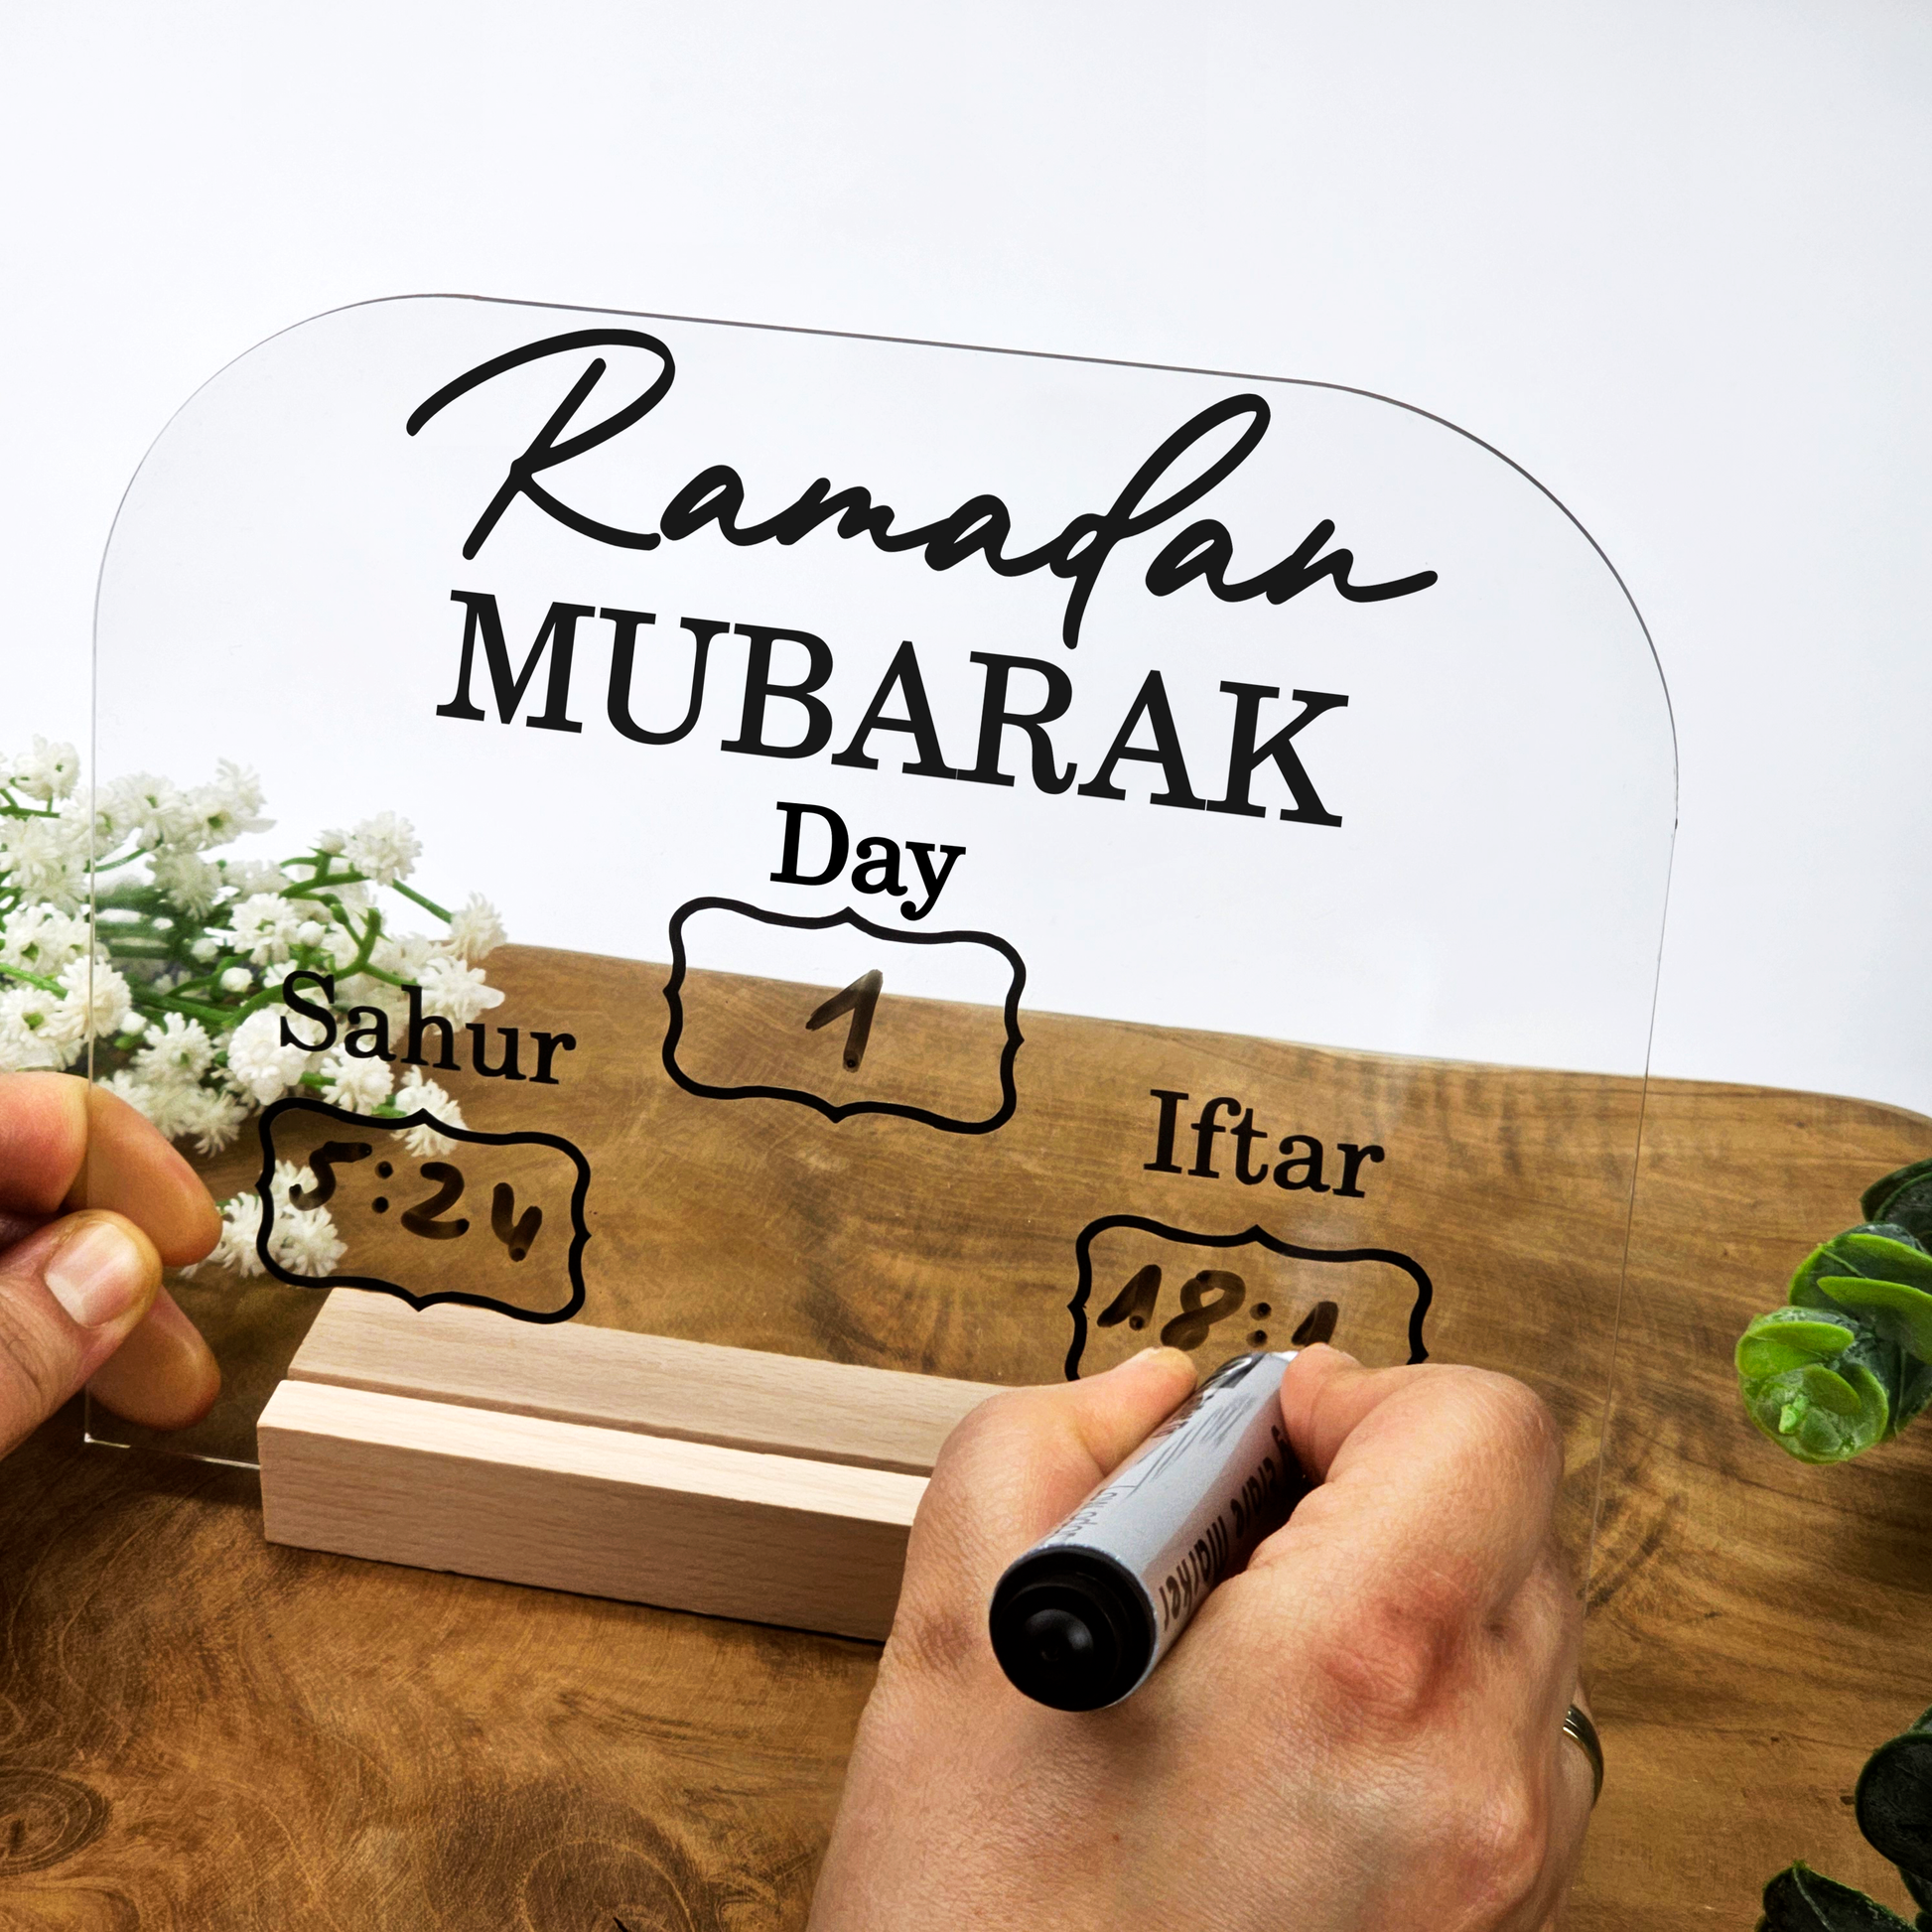 Ramadan
MUBARAK
Day
1
Sahur
5:24
Iftar
18:1